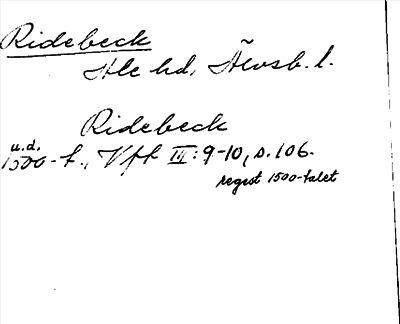 Ridebeck
Ale hd, Älvsb. l.
Ridebeck
u.d.
1500-t., Vfk III: 9-10, s. 106.
regest 1500-talet